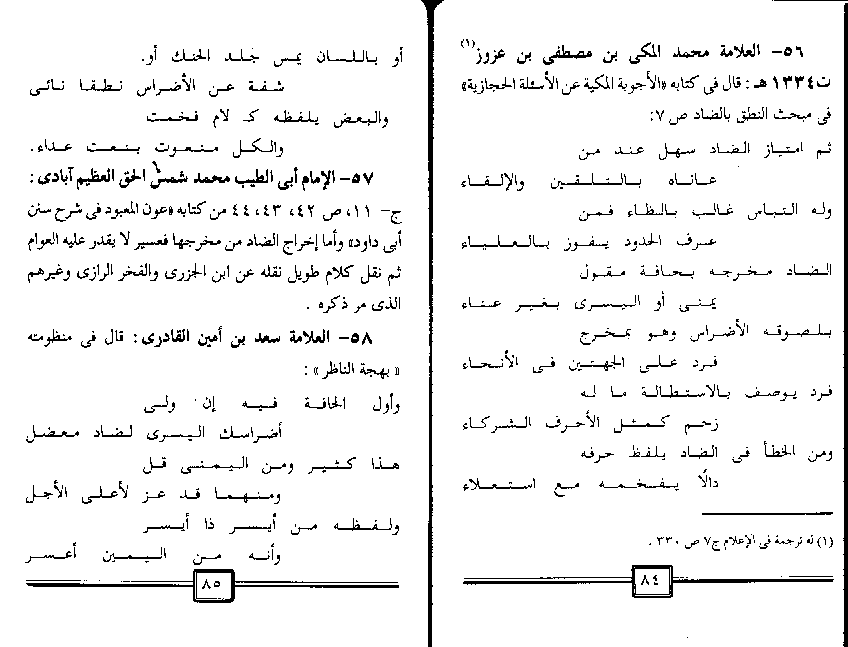 ٥٦- العلامة محمد المكى بن مصطفى بن عزوز(١)
ت١٣٣٤ هـ : قال فى كتابه «الأجوبة المكية عن الأسئلة الحجازية»
فى مبحث النطق بالضاد ص ٧:
ثم امتياز الضاد سهل عند من
عاناه بالتلقين والإلقاء
وله التباس غالب بالظاء فمن
عرف الحدود يفوز بالعلياء
الضاد مخرجه بحافة مقول
يمنى أو اليسرى بغير عناء
بلصوقه الأضراس وهو بمخرج
فرد على الجهتين فى الأنحاء
فرد يوصف بالاستطالة ما له
زحم كمثل الأحرف الشركاء
ومن الخطأ فى الضاد يلفظ حرفه
دالًا يفخمه مع استعلاء
(١) له ترجمة فى الإعلام ج٧ ص ٣٣٠ .
٨٤
أو باللسان يمس جلد الحنك أو.
شفة عن الأضراس نطقا نائى
والبعض يلفظه كـ لام فخمت
والكل منعوت بنعت عداء.
٥٧- الإمام أبى الطيب محمد شمس الحق العظيم آبادى :
ج- ١١، ص ٤٢، ٤٣، ٤٤ من كتابه «عون المعبود فى شرح سنن
أبى داود» وأما إخراج الضاد من مخرجها فعسير لا يقدر عليه العوام
ثم نقل كلام طويل نقله عن ابن الجزرى والفخر الرازى وغيرهم
الذى مر ذكره .
٥٨- العلامة سعد بن أمين القادرى : قال فى منظومته
« بهجة الناظر» :
وأول الحافة فيه إن ولى
أضراسك اليسرى لضاد معضل
هذا كثير ومن اليمنى قل
ومنهما قد عز لأعلى الأجل
ولفظه من أيسر ذا أيسر
وأنه من اليمين أعسر
٨٥